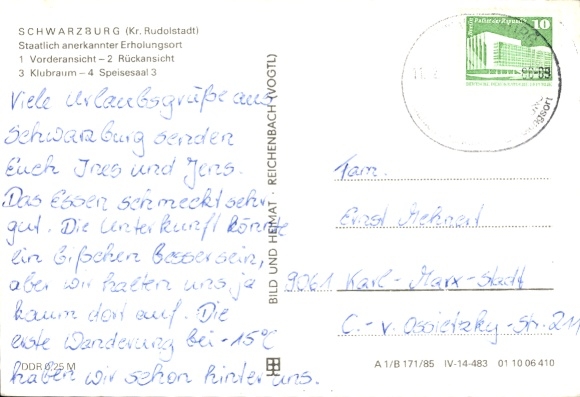 SCHWARZBURG (Kr. Rudolstadt)
Staatlich anerkannter Erholungsort
1 Vorderansicht – 2 Rückansicht
3 Klubraum – 4 Speisesaal 3
Viele Urlaubsgrüße aus
Schwarzburg senden
Euch Ines und Jens.
Das Essen schmeckt sehr
gut. Die Unterkunft könnte
ein bißchen besser sein,
aber wir halten uns ja
kaum dort auf. Die
erste Wanderung bei -15°C
haben wir schon hinter uns.
DDR 0,25 M
BILD UND HEIMAT · REICHENBACH (VOGTL)
Berlin, Palast der Republik
10
Fam.
Ernst Mehnert
9061 Karl-Marx-Stadt
C.-v. Ossietzky-Str. 211
A 1/B 171/85 IV-14-483 01 10 06 410